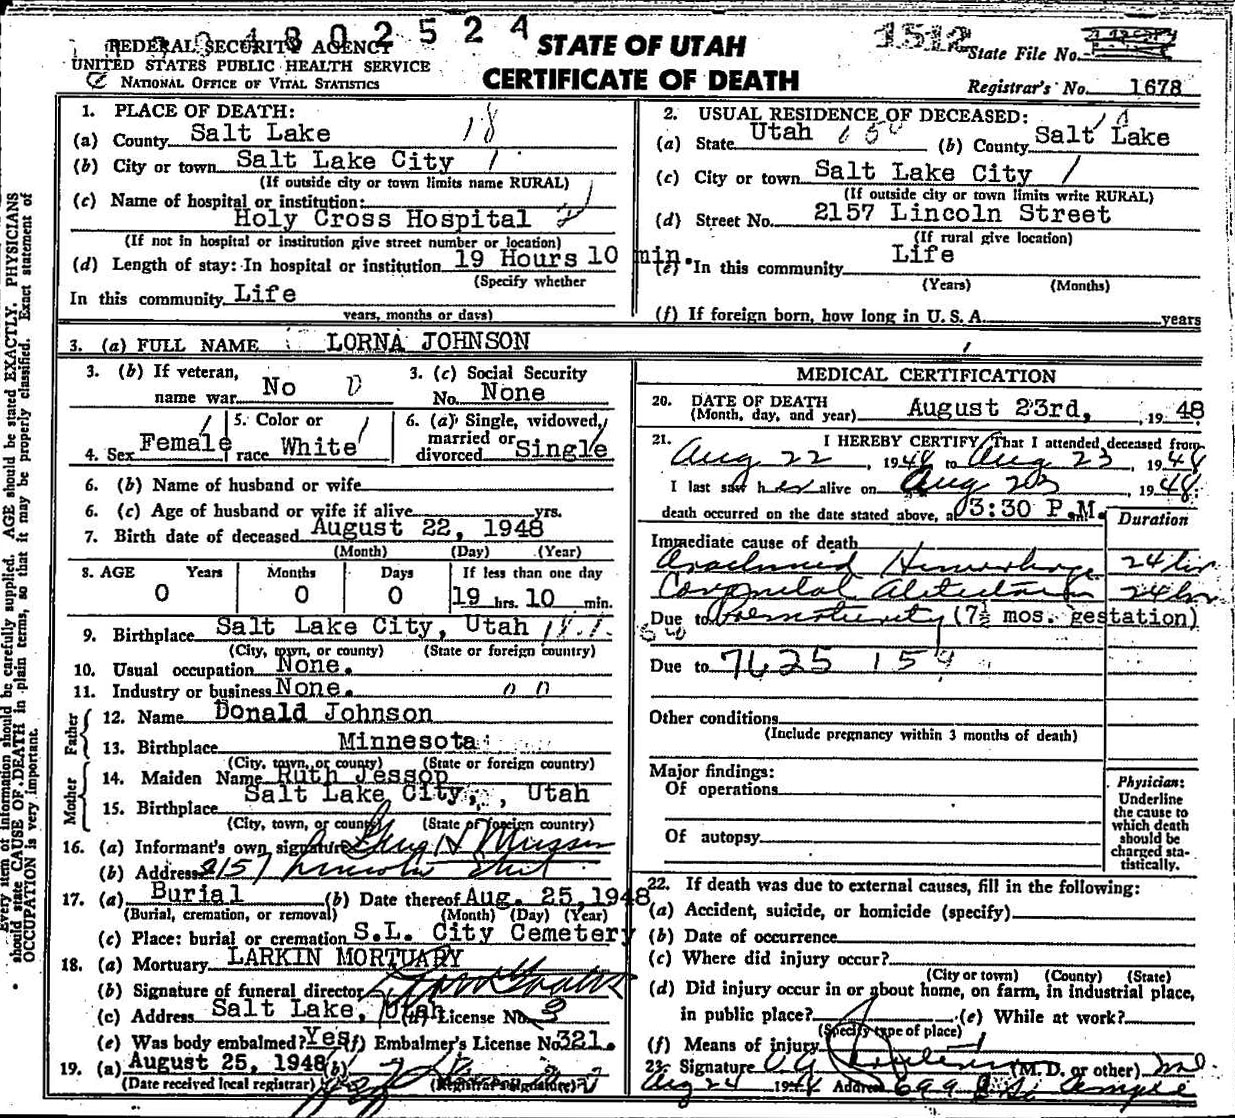 4802524
FEDERAL SECURITY AGENCY
UNITED STATES PUBLIC HEALTH SERVICE
NATIONAL OFFICE OF VITAL STATISTICS
STATE OF UTAH
CERTIFICATE OF DEATH
1512
State File No.
Registrar's No. 1678
Every item of information should be carefully supplied. AGE should be stated EXACTLY. PHYSICIANS
should state CAUSE OF DEATH in plain terms, so that it may be properly classified. Exact statement of
OCCUPATION is very important.
1. PLACE OF DEATH:
(a) County Salt Lake 18
(b) City or town Salt Lake City 1
(If outside city or town limits name RURAL)
(c) Name of hospital or institution:
Holy Cross Hospital
(If not in hospital or institution give street number or location)
(d) Length of stay: In hospital or institution 19 Hours 10 min.
(Specify whether
In this community Life
years, months or days)
2. USUAL RESIDENCE OF DECEASED:
(a) State Utah (b) County Salt Lake
(c) City or town Salt Lake City 1
(If outside city or town limits write RURAL)
(d) Street No. 2157 Lincoln Street
(If rural give location)
(e) In this community Life
(Years) (Months)
(f) If foreign born, how long in U. S. A. years
3. (a) FULL NAME LORNA JOHNSON
3. (b) If veteran,
name war No 0
3. (c) Social Security
No. None
4. Sex Female
5. Color or
race White
6. (a) Single, widowed,
married or
divorced Single
6. (b) Name of husband or wife
6. (c) Age of husband or wife if alive yrs.
7. Birth date of deceased August 22, 1948
(Month) (Day) (Year)
8. AGE Years Months Days If less than one day
0 0 0 19 hrs. 10 min.
9. Birthplace Salt Lake City, Utah
(City, town, or county) (State or foreign country)
10. Usual occupation None.
11. Industry or business None.
Father
12. Name Donald Johnson
13. Birthplace Minnesota
(City, town, or county) (State or foreign country)
Mother
14. Maiden Name Ruth Jesson
15. Birthplace Salt Lake City, , Utah
(City, town, or county) (State of foreign country)
16. (a) Informant's own signature
(b) Address 2157 Lincoln
17. (a) Burial (b) Date thereof Aug. 25, 1948
(Burial, cremation, or removal) (Month) (Day) (Year)
(c) Place: burial or cremation S.L. City Cemetery
18. (a) Mortuary LARKIN MORTUARY
(b) Signature of funeral director
(c) Address Salt Lake, Utah (d) License No. 3
(e) Was body embalmed? Yes (f) Embalmer's License No. 321.
19. (a) August 25, 1948 (b)
(Date received local registrar) (Registrar's signature)
MEDICAL CERTIFICATION
20. DATE OF DEATH
(Month, day, and year) August 23rd, , 1948
21. I HEREBY CERTIFY, That I attended deceased from
Aug 22, 1948 to Aug 23, 1948
I last saw her alive on Aug 23, 1948.
death occurred on the date stated above, at 3:30 P.M.
Duration
Immediate cause of death
Arachnoid Hemorrhage 24 hrs
Congenital Atelectasis 24 hrs
Due to Prematurity (7½ mos. gestation)
Due to 7625 159
Other conditions
(Include pregnancy within 3 months of death)
Major findings:
Of operations
Of autopsy
Physician:
Underline
the cause to
which death
should be
charged sta-
tistically.
22. If death was due to external causes, fill in the following:
(a) Accident, suicide, or homicide (specify)
(b) Date of occurrence
(c) Where did injury occur?
(City or town) (County) (State)
(d) Did injury occur in or about home, on farm, in industrial place,
in public place? (e) While at work?
(Specify type of place)
(f) Means of injury
23. Signature (M. D. or other) MD
Aug 24 1948 Address 699 E So Temple